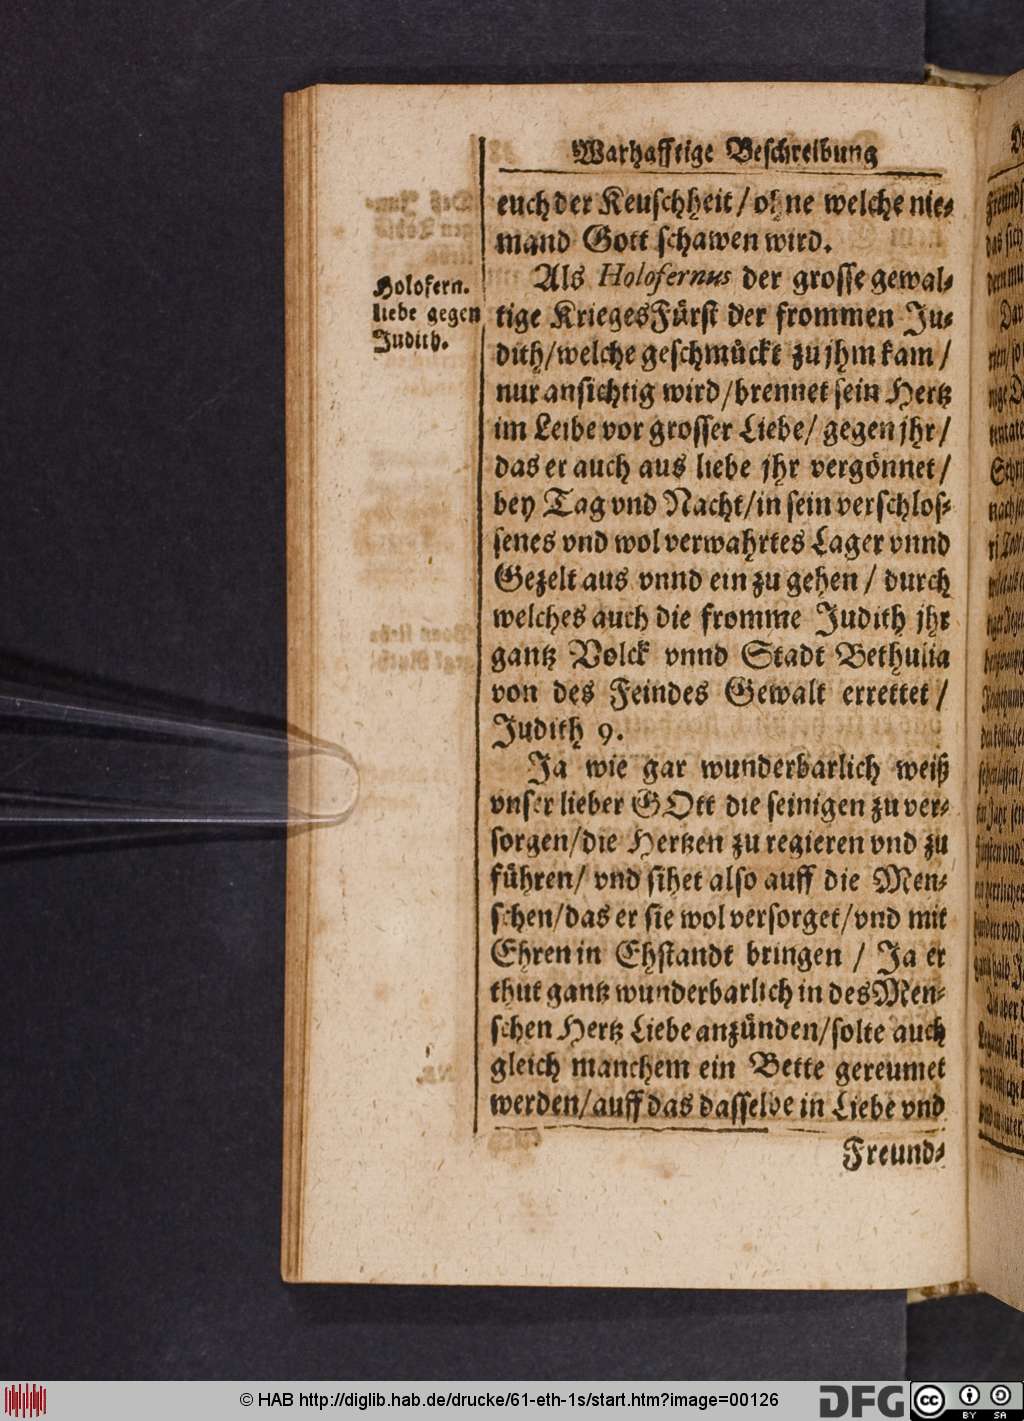 Warhafftige Beschreibung
euch der Keuschheit / ohne welche nie-
mand Gott schawen wird.
Als Holofernus der grosse gewal-
Holofern.
liebe gegen
Judith.
tige KriegesFürst der frommen Ju-
dith/welche geschmückt zu jhm kam /
nur ansichtig wird/brennet sein Hertz
im Leibe vor grosser Liebe/ gegen jhr/
das er auch aus liebe jhr vergönnet/
bey Tag vnd Nacht/in sein verschlos-
senes vnd wol verwahrtes Lager vnnd
Gezelt aus vnnd ein zu gehen / durch
welches auch die fromme Judith jhr
gantz Volck vnnd Stadt Bethulia
von des Feindes Gewalt errettet /
Judith 9.
Ja wie gar wunderbarlich weiß
vnser lieber GOtt die seinigen zu ver-
sorgen/die Hertzen zu regieren vnd zu
führen/ vnd sihet also auff die Men-
schen/das er sie wol versorget/vnd mit
Ehren in Ehstandt bringen / Ja er
thut gantz wunderbarlich in des Men-
schen Hertz Liebe anzünden/solte auch
gleich manchem ein Bette gereumet
werden/auff das dasselbe in Liebe vnd
Freund-
© HAB http://diglib.hab.de/drucke/61-eth-1s/start.htm?image=00126
DFG
cc
BY SA